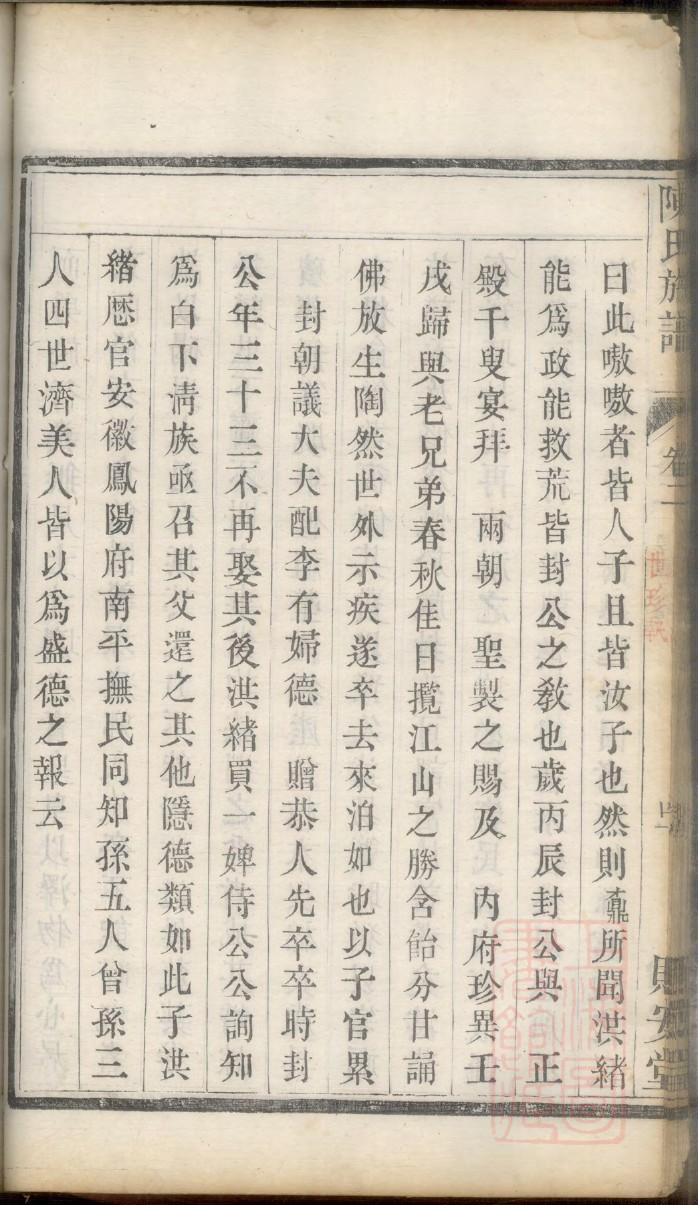 陳氏族譜 卷二
世珍戡
則安堂
曰此嗷嗷者皆人子且皆汝子也然則鼐所聞洪緒
能爲政能救荒皆封公之敎也歲丙辰封公與 正
殿千叟宴拜 兩朝 聖製之賜及 內府珍異壬
戌歸與老兄弟春秋佳日攬江山之勝含飴分甘誦
佛放生陶然世外示疾遂卒去來泊如也以子官累
封朝議大夫配李有婦德 贈恭人先卒卒時封
公年三十三不再娶其後洪緒買一婢侍公公詢知
爲白下淸族亟召其父還之其他隱德類如此子洪
緒歷官安徽鳳陽府南平撫民同知孫五人曾孫三
人四世濟美人皆以爲盛德之報云